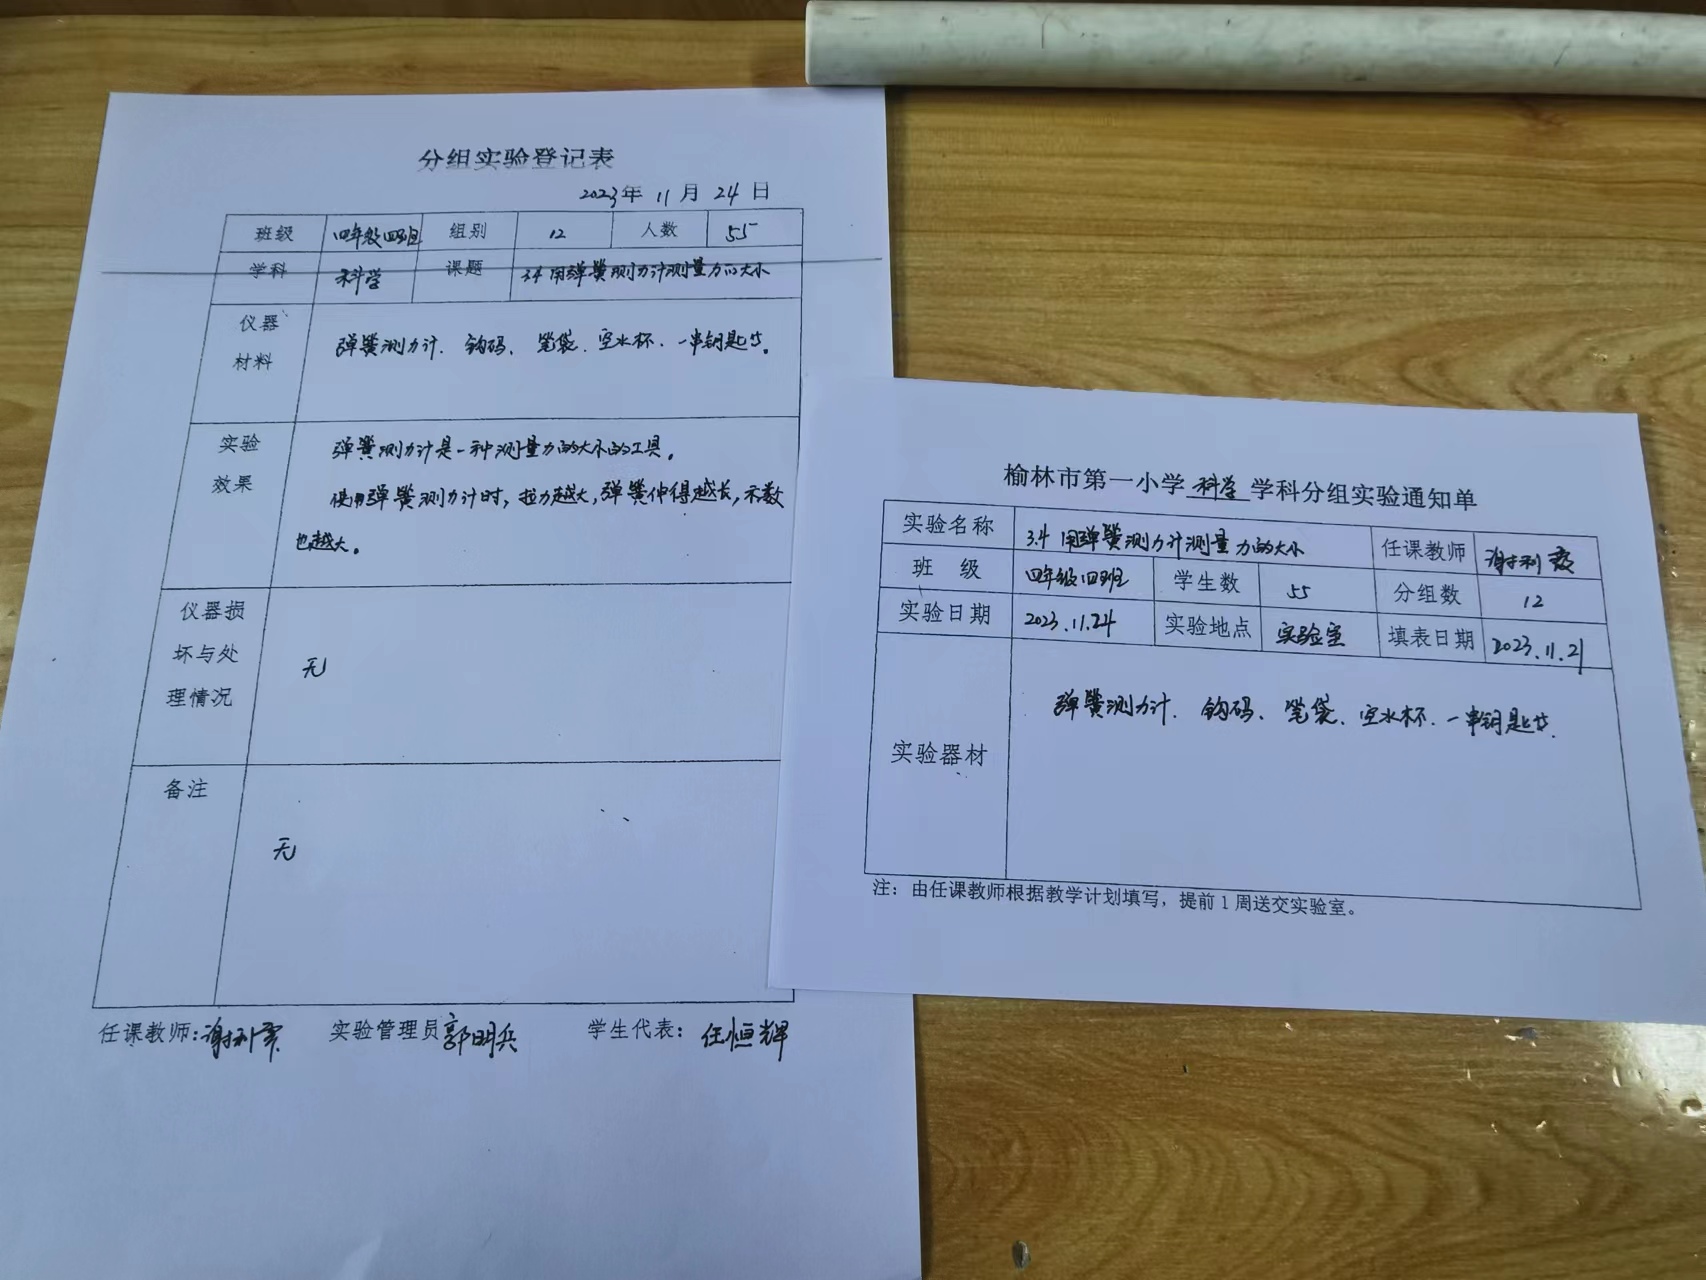 分组实验登记表
2023年 11 月 24 日
班级 四年级四班 组别 12 人数 55
学科 科学 课题 3.4 用弹簧测力计测量力的大小
仪器
材料
弹簧测力计、钩码、笔袋、空水杯、一串钥匙。
实验
效果
弹簧测力计是一种测量力的大小的工具。
使用弹簧测力计时，拉力越大，弹簧伸得越长，示数
也越大。
仪器损
坏与处
理情况
无
备注
无
任课教师: 谢利 实验管理员 郭明兵 学生代表: 任恒辉
榆林市第一小学 科学 学科分组实验通知单
实验名称 3.4 用弹簧测力计测量力的大小 任课教师 谢利
班 级 四年级四班 学生数 55 分组数 12
实验日期 2023.11.24 实验地点 实验室 填表日期 2023.11.21
实验器材 弹簧测力计、钩码、笔袋、空水杯、一串钥匙等.
注：由任课教师根据教学计划填写，提前 1 周送交实验室。